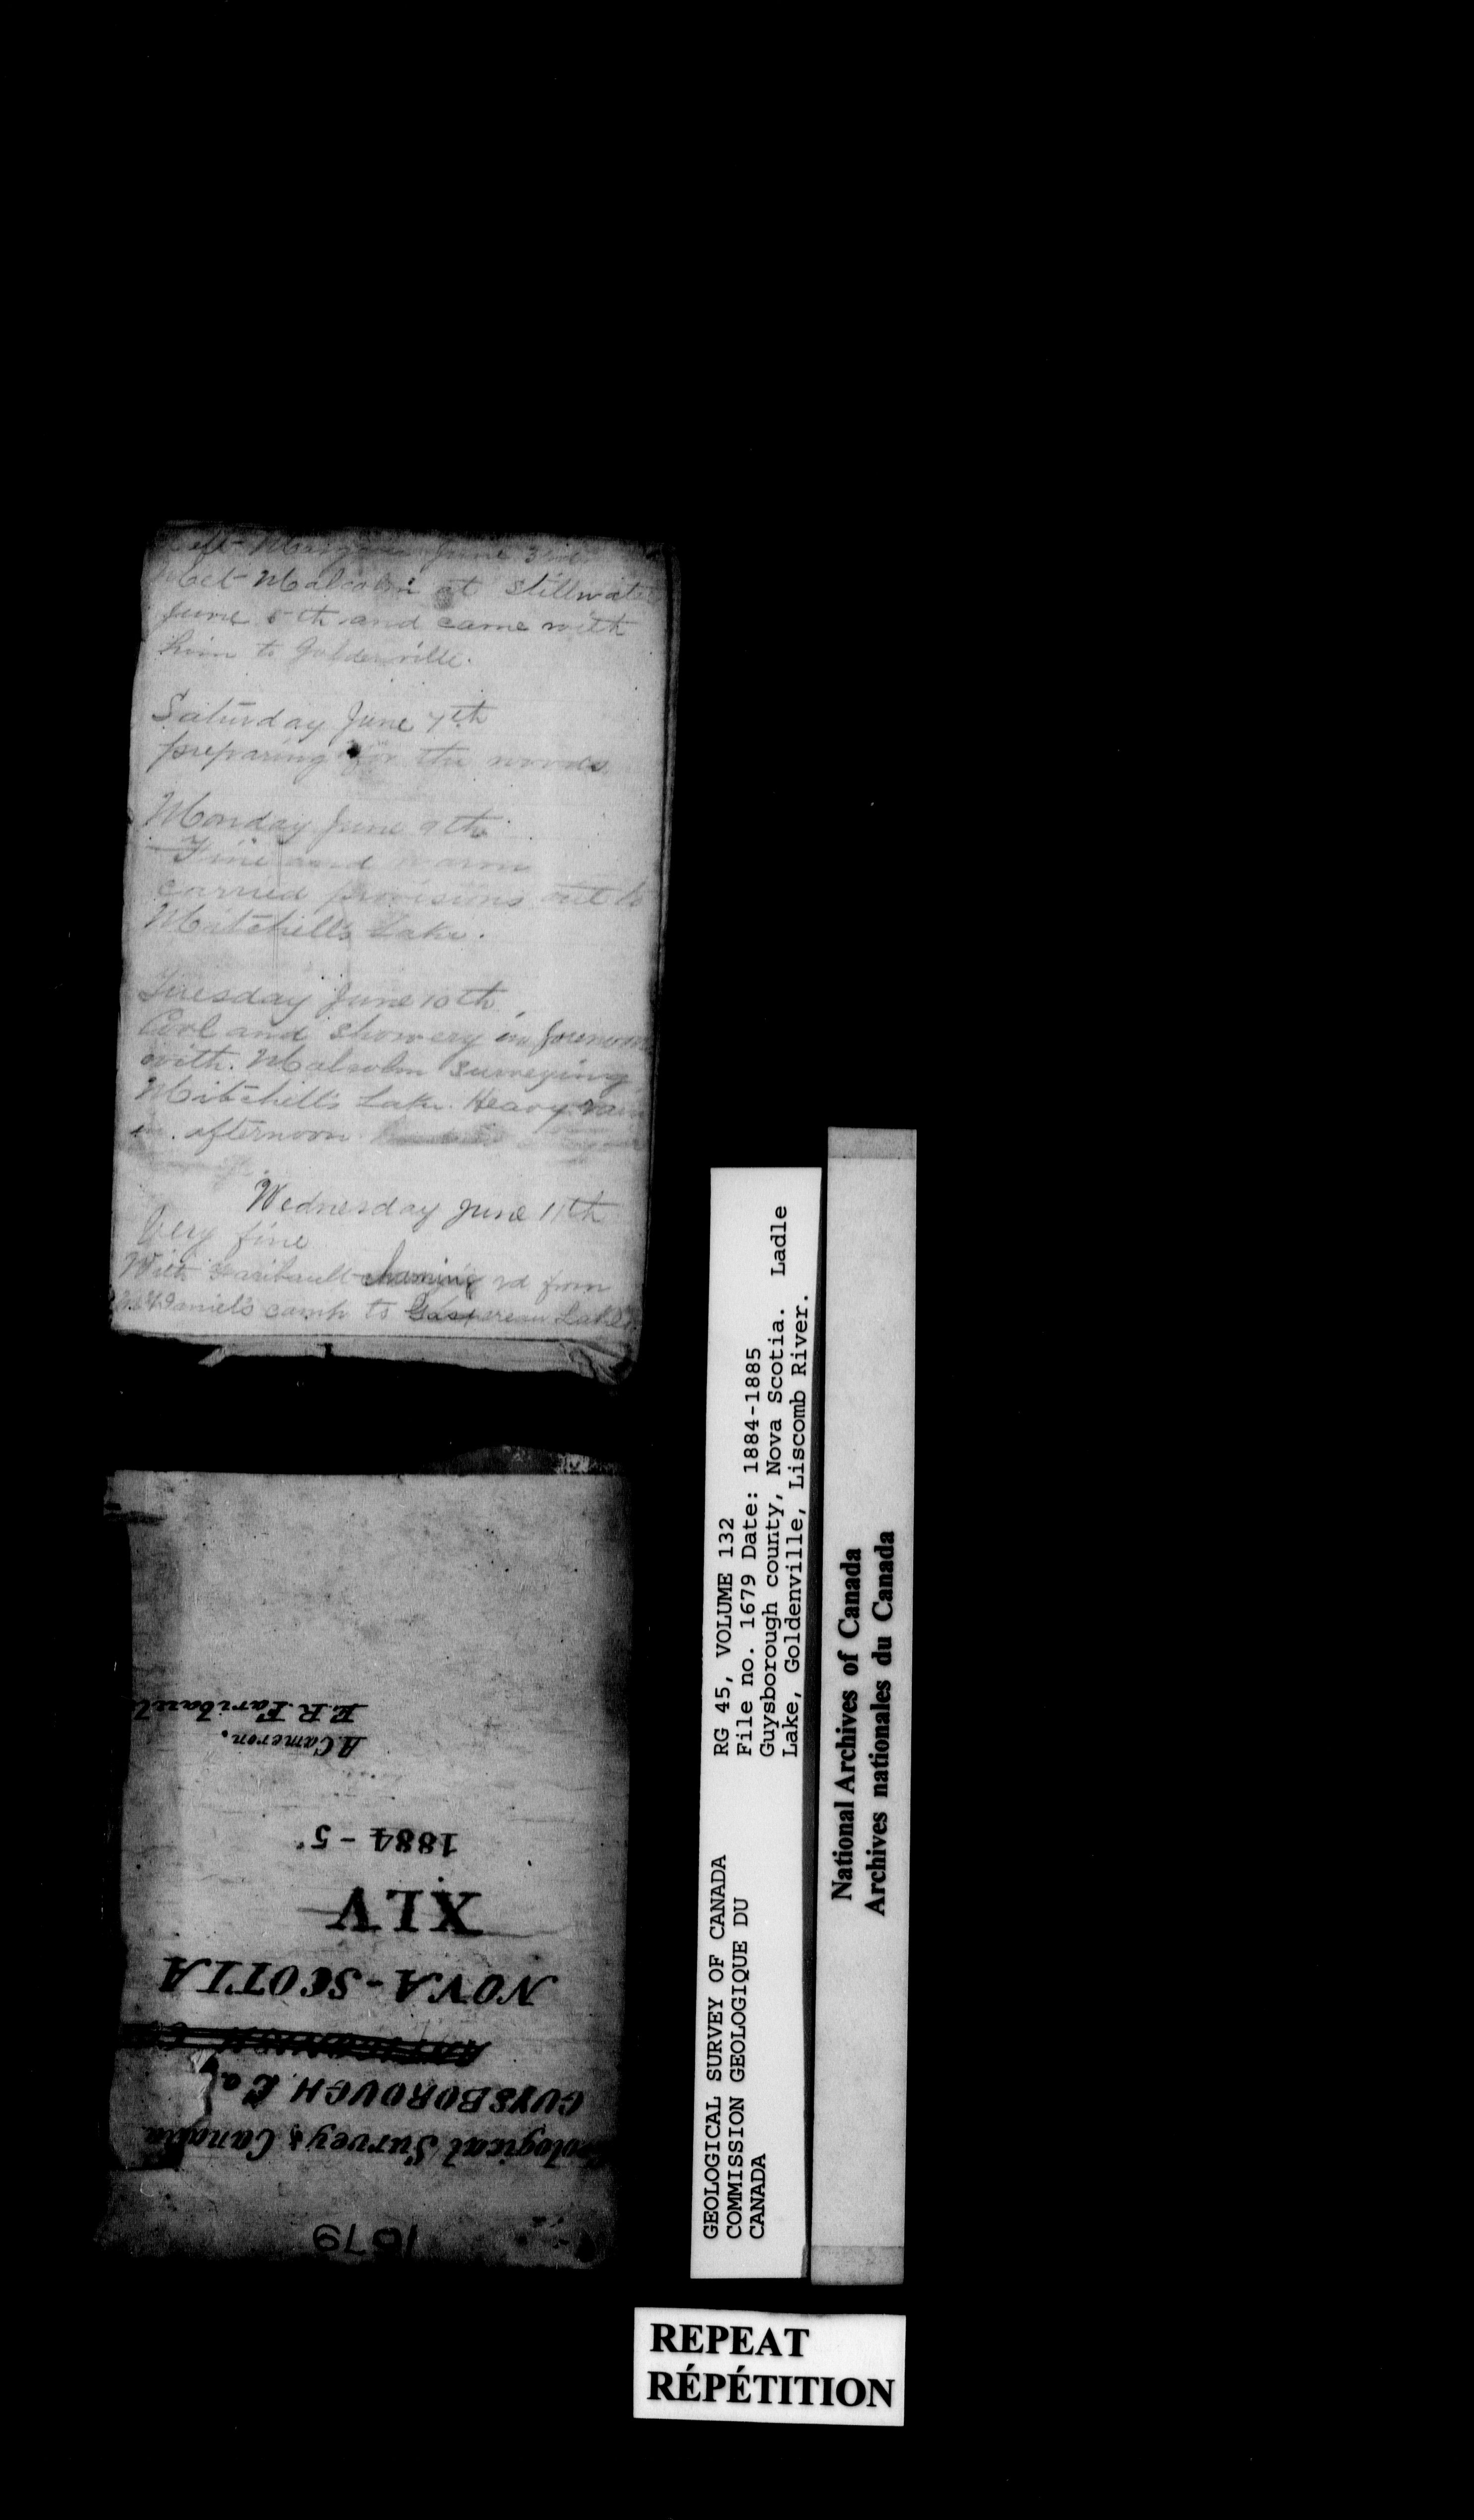 June 3rd
Met Malcolm at Stillwater
June 5th and came with
him to Goldenville.
Saturday June 7th
preparing for the woods
Monday June 9th
Fine and warm
carried provisions out to
Mitchell's Lake.
Tuesday June 10th
Cool and showery in forenoon
with Malcolm surveying
Mitchell's Lake. Heavy rain
in afternoon
Wednesday June 11th
Very fine
With Faribault chaining rd from
McDaniel's camp to Gaspereau Lake
Geological Survey, Canada
GUYSBOROUGH Co.
NOVA-SCOTIA
XLV
1884-5.
A. Cameron.
E.R. Faribault
1679
GEOLOGICAL SURVEY OF CANADA
COMMISSION GEOLOGIQUE DU
CANADA
RG 45, VOLUME 132
File no. 1679 Date: 1884-1885
Guysborough county, Nova Scotia. Ladle
Lake, Goldenville, Liscomb River.
National Archives of Canada
Archives nationales du Canada
REPEAT
RÉPÉTITION